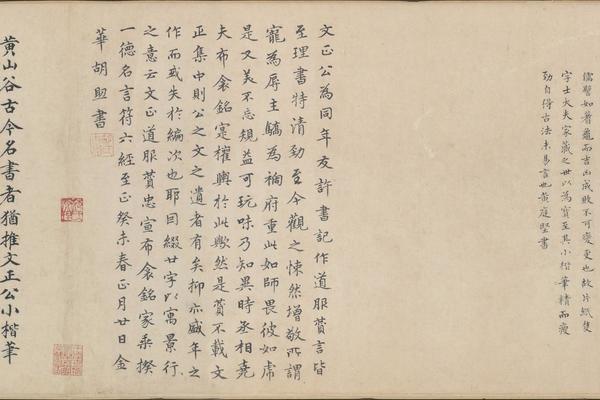 儒譬如蓍龜而吉凶成敗不可變更也故片紙隻
字士大夫家藏之世以為寶至其小楷筆精而瘦
勁自得古法未易言也黃庭堅書
文正公為同年友許書記作道服贊言皆
至理書特清勁至今觀之悚然增敬所謂
寵為辱主驕為禍府重此如師畏彼如虎
是又美不忘規益可玩味乃知異時丞相堯
夫布衾銘寔權輿於此歟然是贊不載文
正集中則公之文之遺者有矣抑亦盛年之
作而或失於編次也耶回綴廿字以寓景行
之意云文正道服贊忠宣布衾銘家乘揆
一德名言符六經至正癸未春正月廿日金
華胡助書
黃山谷古今名書者猶推文正公小楷筆